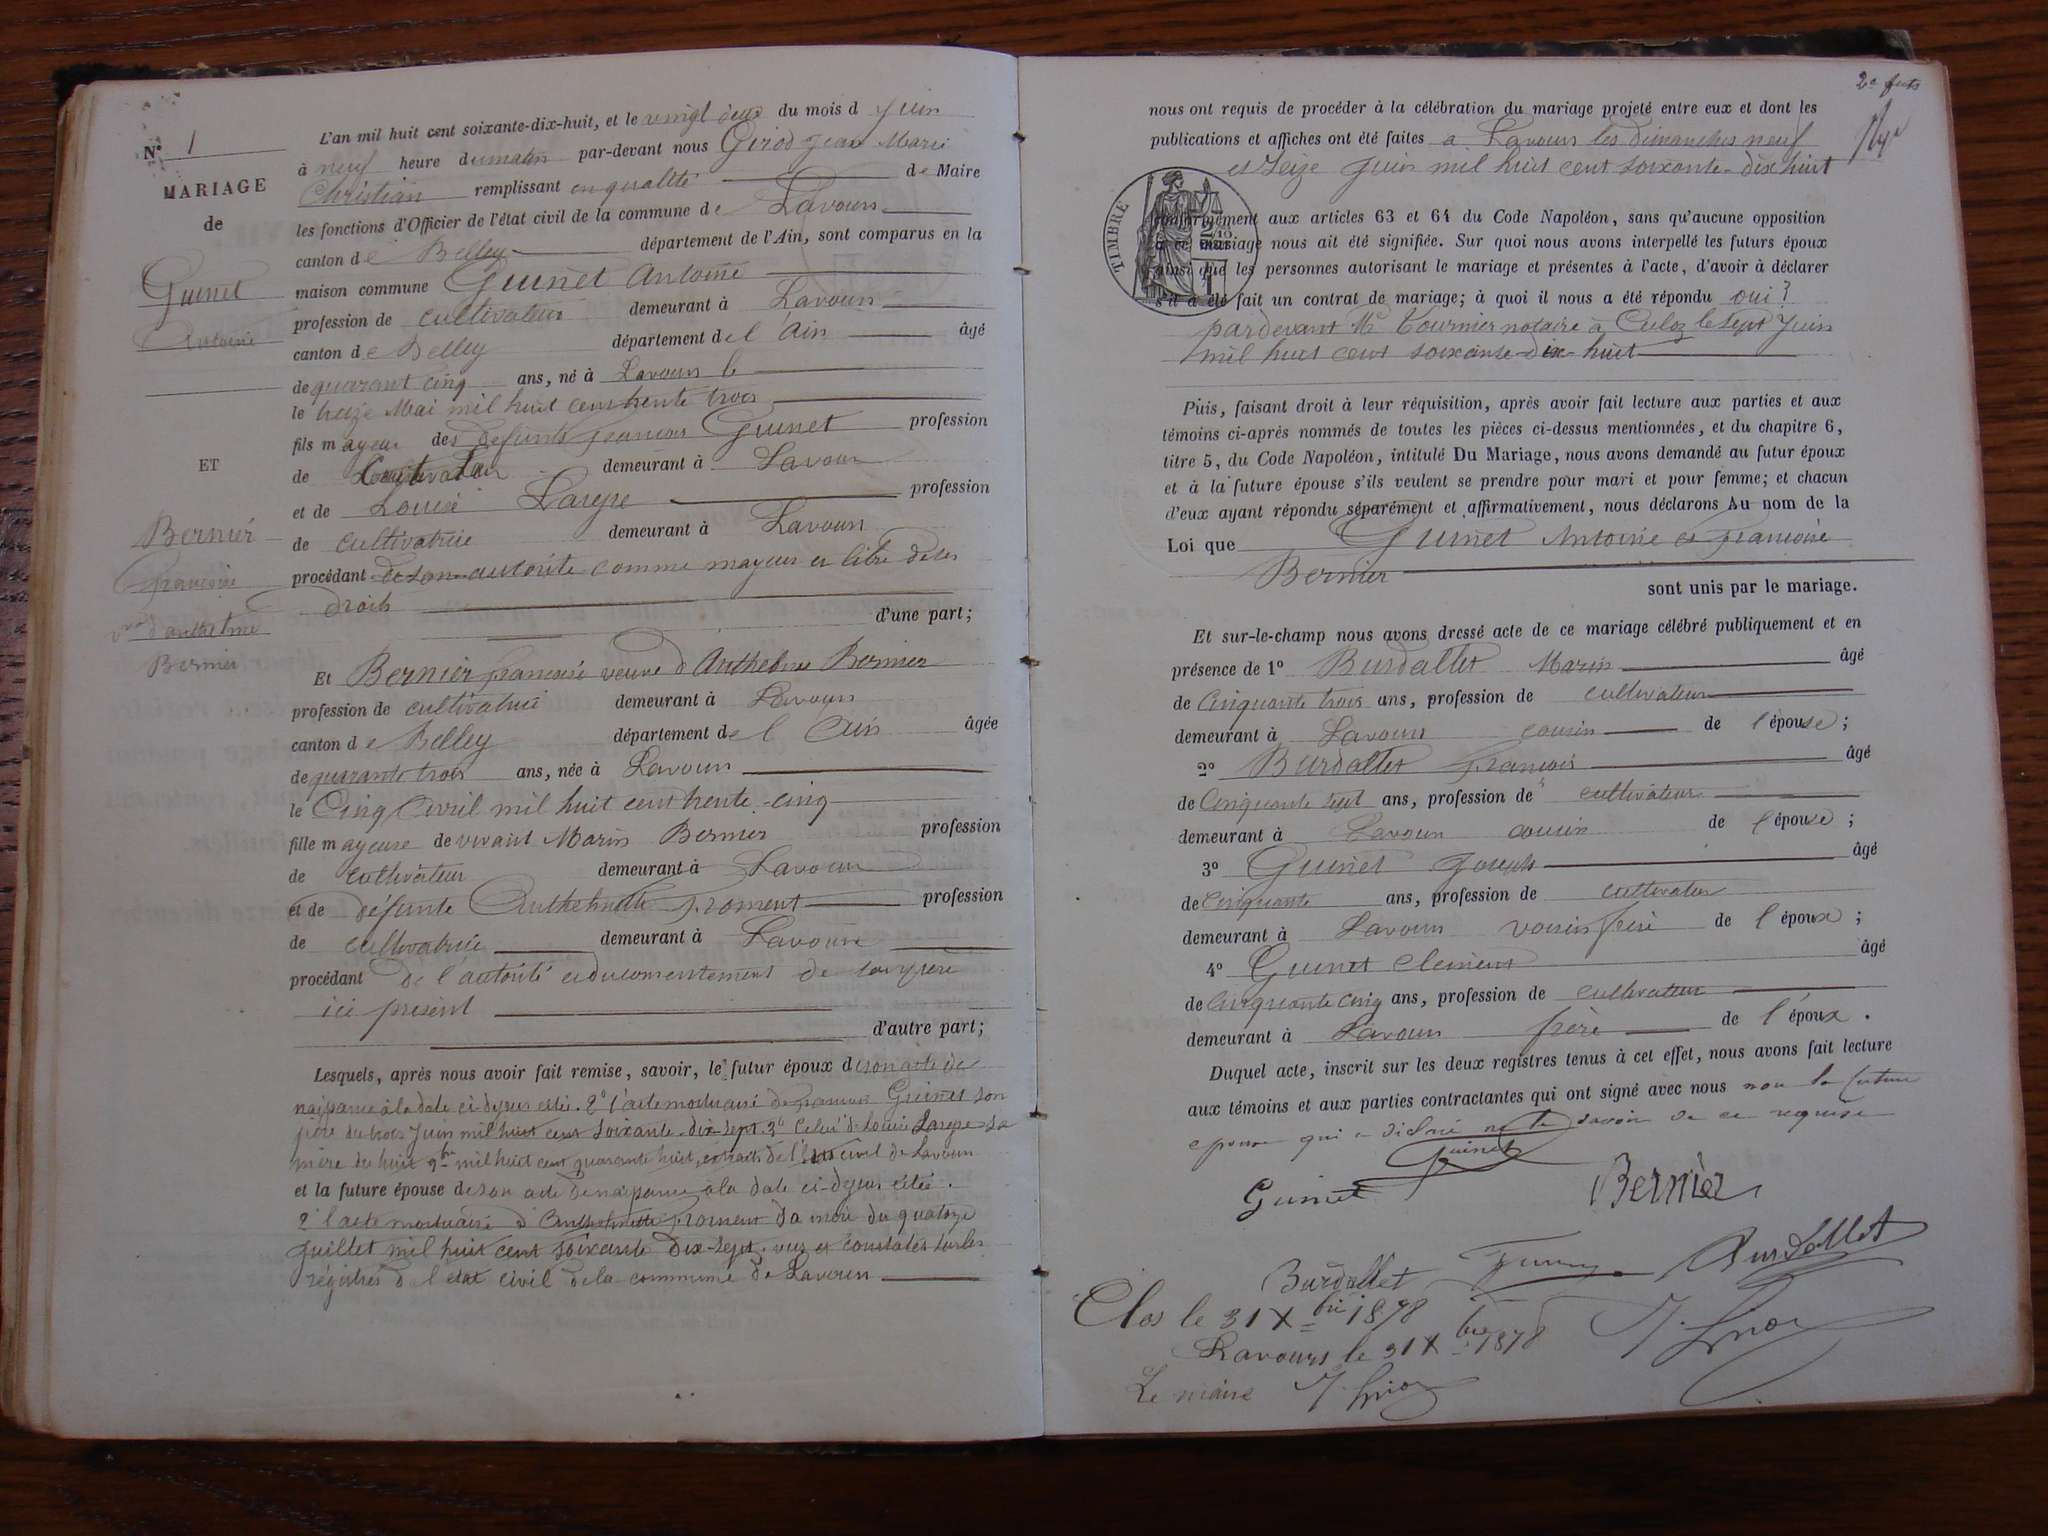 N° 1
MARIAGE
de
Guinet
Antoine
ET
Bernier
françoise
vve d'anthelme
Bernier
L'an mil huit cent soixante-dix-huit, et le vingt deux du mois d Juin
à neuf heure dumatin par-devant nous Girod Jean Marie
Christian remplissant en qualité de Maire
les fonctions d'Officier de l'état civil de la commune de Lavours
canton de Belley département de l'Ain, sont comparus en la
maison commune Guinet Antoine
profession de cultivateur demeurant à Lavours
canton de Belley département de l'Ain âgé
de quarant cinq ans, né à Lavours le
le treize Mai mil huit cent trente trois
fils mayeur des défunts françois Guinet profession
de Cultivateur demeurant à Lavours
et de Louise Largre profession
de cultivatrice demeurant à Lavours
procédant de son autorité comme mayeur et libre de ses
droits
d'une part;
Et Bernier françoise veuve d'Anthelme Bernier
profession de cultivatrice demeurant à Lavours
canton de Belley département de l Ain âgée
de quarante trois ans, née à Lavours
le Cinq Avril mil huit cent trente-cinq
fille mayeure de vivant Marin Bernier profession
de cultivateur demeurant à Lavours
et de défunte Anthelmette froment profession
de cultivatrice demeurant à Lavours
procédant de l'autorité et du consentement de son père
ici présent
d'autre part;
Lesquels, après nous avoir fait remise, savoir, le futur époux de son acte de
naissance à la date ci-dessus citée. 2° l'acte mortuaire de françois Guinet son
père du trois Juin mil huit cent soixante-dix-sept. 3° Celui de Louise Largre sa
mère du huit 9bre mil huit cent quarante huit, extraits de l'état civil de Lavours
et la future épouse de son acte de naissance à la date ci-dessus citée.
2° l'acte mortuaire d'Anthelmette froment sa mère du quatorze
Juillet mil huit cent soixante Dix-sept. vus et constatés sur les
régistres de l'état civil de la commune de Lavours
2e futs
nous ont requis de procéder à la célébration du mariage projeté entre eux et dont les
publications et affiches ont été faites à Lavours les dimanches neuf
et seize Juin mil huit cent soixante-dix huit
TIMBRE
conformément aux articles 63 et 64 du Code Napoléon, sans qu'aucune opposition
à ce mariage nous ait été signifiée. Sur quoi nous avons interpellé les futurs époux
ainsi que les personnes autorisant le mariage et présentes à l'acte, d'avoir à déclarer
s'il a été fait un contrat de mariage; à quoi il nous a été répondu oui?
pardevant Me Tournier notaire à Culoz le sept Juin
mil huit cent soixante-dix-huit
Puis, faisant droit à leur réquisition, après avoir fait lecture aux parties et aux
témoins ci-après nommés de toutes les pièces ci-dessus mentionnées, et du chapitre 6,
titre 5, du Code Napoléon, intitulé Du Mariage, nous avons demandé au futur époux
et à la future épouse s'ils veulent se prendre pour mari et pour femme; et chacun
d'eux ayant répondu séparément et affirmativement, nous déclarons Au nom de la
Loi que Guinet Antoine et françoise
Bernier
sont unis par le mariage.
Et sur-le-champ nous avons dressé acte de ce mariage célébré publiquement et en
présence de 1° Burdallet Marin âgé
de Cinquante trois ans, profession de cultivateur
demeurant à Lavours cousin de l'épouse;
2° Burdallet françois âgé
de Cinquante sept ans, profession de cultivateur
demeurant à Lavours cousin de l'épouse;
3° Guinet Joseph âgé
de Cinquante ans, profession de cultivateur
demeurant à Lavours frère de l'époux;
4° Guinet Clément âgé
de Cinquante cinq ans, profession de cultivateur
demeurant à Lavours frère de l'époux.
Duquel acte, inscrit sur les deux registres tenus à cet effet, nous avons fait lecture
aux témoins et aux parties contractantes qui ont signé avec nous non la future
epouse qui a déclaré ne le savoir de ce requise
Guinet
Guinet Bernier
Burdallet Burdallet
Clos le 31 Xbre 1878
Lavours le 31 Xbre 1878
Le maire